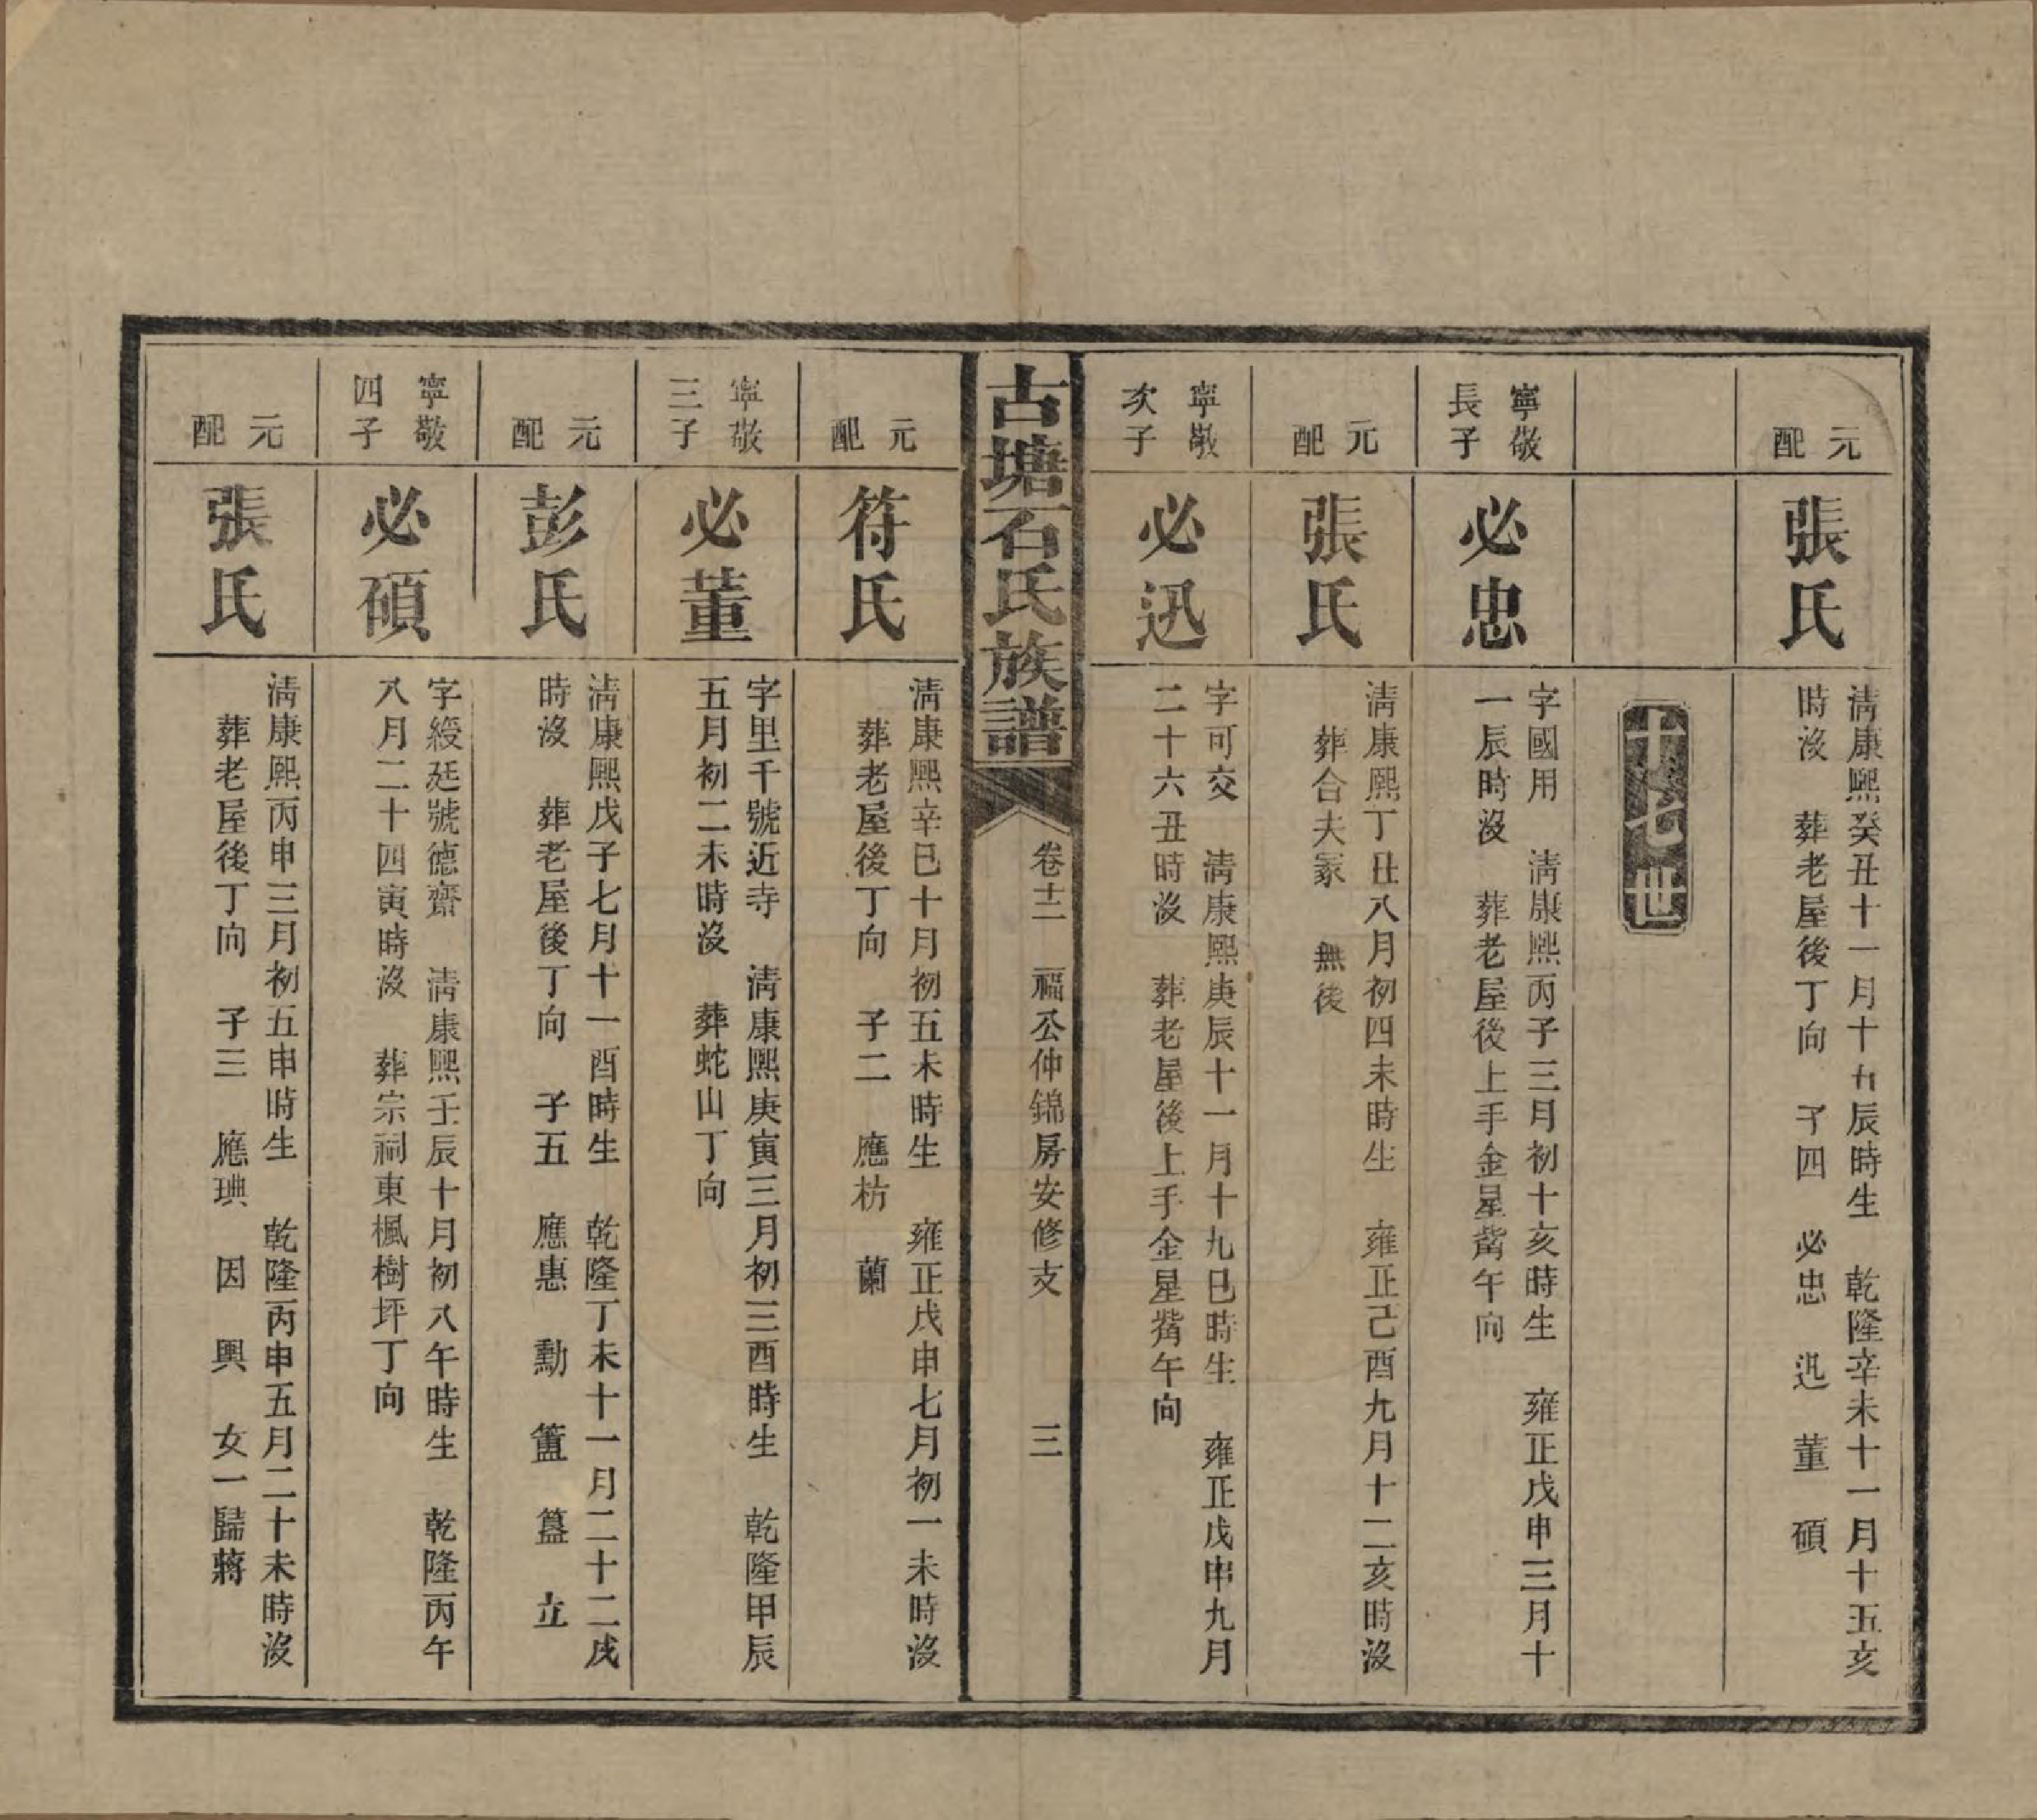 元配
張氏
淸康熙癸丑十一月十五辰時生　乾隆辛未十一月十五亥
時沒　葬老屋後丁向　子四　必忠　迅　董　碩
十七世
寧敬
長子
必忠
字國用　淸康熙丙子三月初十亥時生　雍正戊申三月十
一辰時沒　葬老屋後上手金星觜午向
元配
張氏
淸康熙丁丑八月初四未時生　雍正己酉九月十二亥時沒
葬合夫冢　無後
寧敬
次子
必迅
字可交　淸康熙庚辰十一月十九巳時生　雍正戊申九月
二十六丑時沒　葬老屋後上手金星觜午向
古塘石氏族譜
卷十二　福公仲錦房安修支　三
元配
符氏
淸康熙辛巳十月初五未時生　雍正戊申七月初一未時沒
葬老屋後丁向　子二　應枋　蘭
寧敬
三子
必董
字里千號近寺　淸康熙庚寅三月初三酉時生　乾隆甲辰
五月初二未時沒　葬蛇山丁向
元配
彭氏
淸康熙戊子七月十一酉時生　乾隆丁未十一月二十二戌
時沒　葬老屋後丁向　子五　應惠　勳　簠　簋　立
寧敬
四子
必碩
字綬廷號德齋　淸康熙壬辰十月初八午時生　乾隆丙午
八月二十四寅時沒　葬宗祠東楓樹坪丁向
元配
張氏
淸康熙丙申三月初五申時生　乾隆丙申五月二十未時沒
葬老屋後丁向　子三　應琠　因　興　女一歸蔣